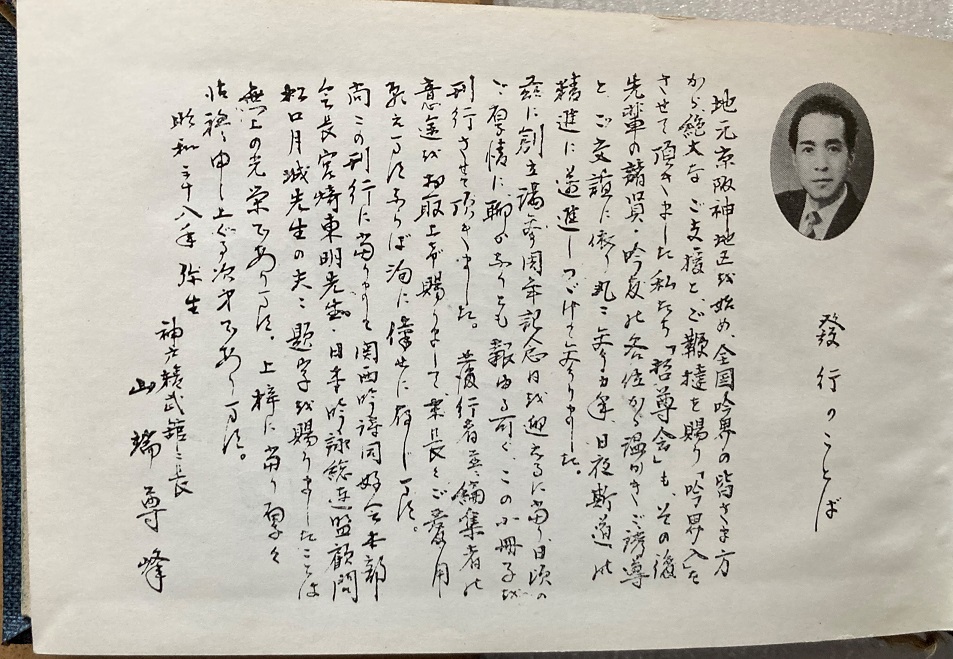 發行のことば
地元京阪神地区を始め、全国吟界の皆さま方
から絶大なご支援と、ご鞭撻を賜り「吟界入」を
させて頂きました私たち「哲尊会」も、その後
先輩の諸賢・吟友の各位から温かき、ご誘導
と、ご交誼に依り、丸二ヶ年、日夜斯道の
精進に邁進しつづけて参りました。
茲に創立満参周年記念日を迎えるに当り、日頃の
ご厚情に、聊かなりとも報ゆる可く、この小冊子を
刊行させて頂きました。発行者並編集者の
意途をお取上げ賜りまして末長くご愛用
願えますならば洵に倖せに存じます。
尚この刊行に当りまして関西吟詩同好会本部
会長宮崎東明先生、日本吟詠総連盟顧問
松口月城先生の夫々題字を賜りましたことは
無上の光栄であります。上梓に当り厚く
申し上ぐる次第であります。
昭和三十八年弥生
神戸精武館々長
山端尊峰